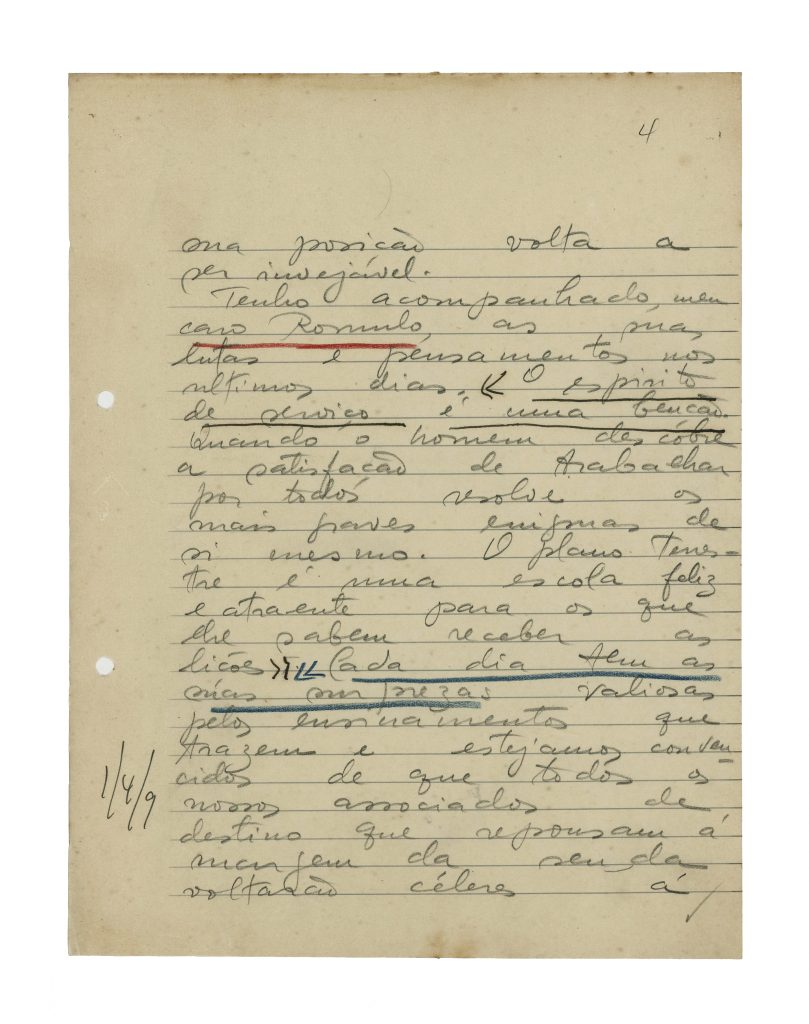 4
sua posição volta a
ser invejável.
Tenho acompanhado, meu
caro Romulo, as suas
lutas e pensamentos nos
ultimos dias. « O espirito
de serviço é uma bencão.
Quando o homem descóbre
a satisfacão de trabalhar
por todos resolve os
mais graves enigmas de
si mesmo. O plano Terres-
tre é uma escola feliz
e atraente para os que
lhe sabem receber as
licões. » « Cada dia tem as
suas surprezas valiosas
pelos ensinamentos que
trazem e estejamos conven-
cidos de que todos os
nossos associados de
destino que repousam á
margem da senda
voltarão céleres á
1/4/9